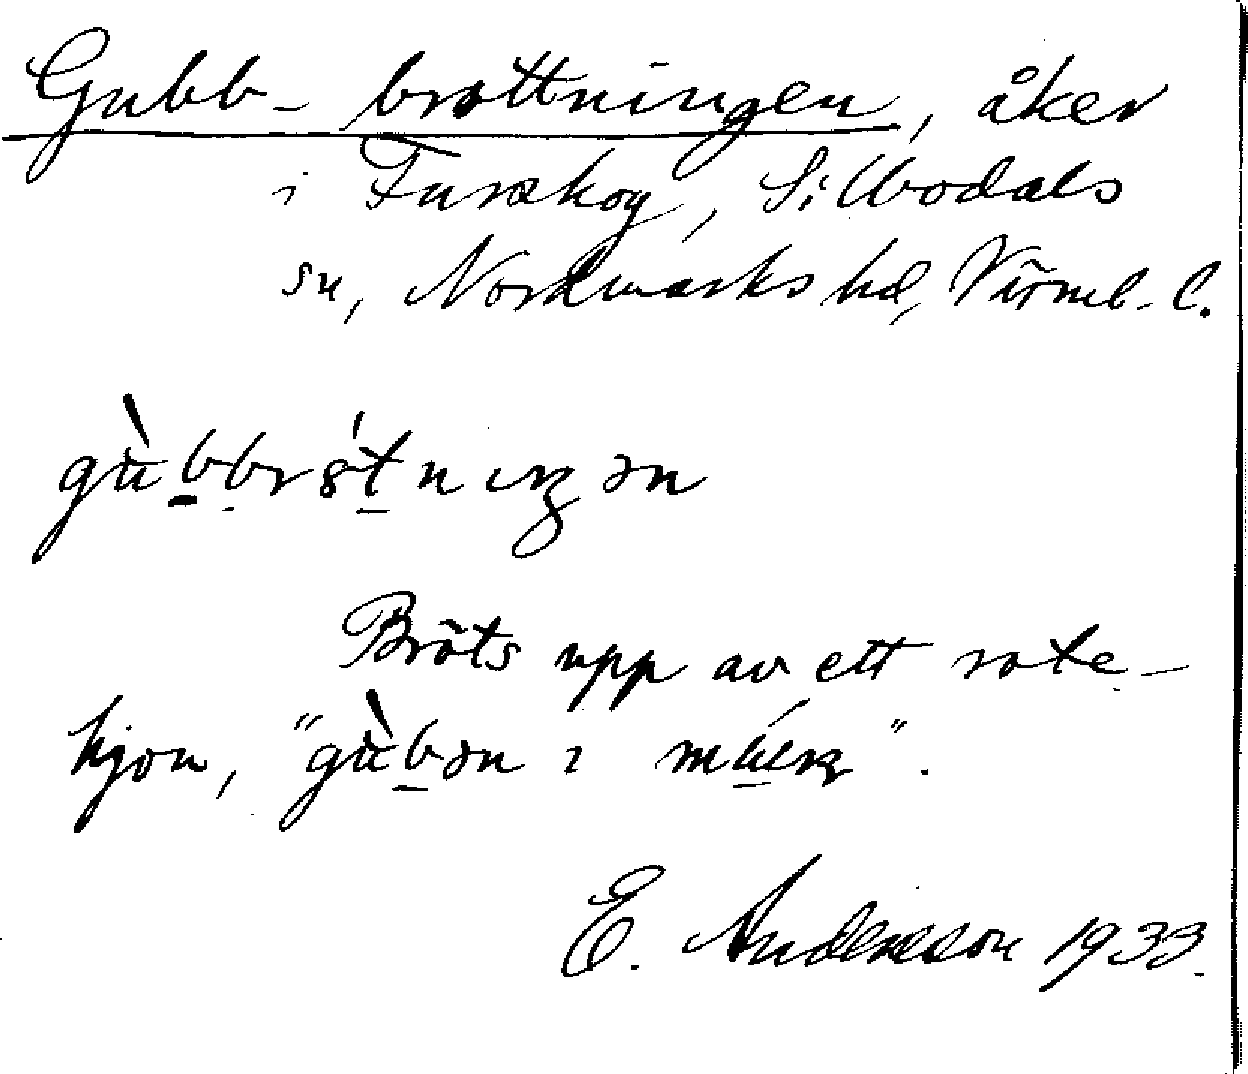 Gubb-brottningen, åker
i Furskog, Sillbodals
sn, Nordmarks hd, Värml. l.
gùbbrśtniŋən
Bröts upp av ett rote-
hjon, "gùbən i
E. Andersson 1933.